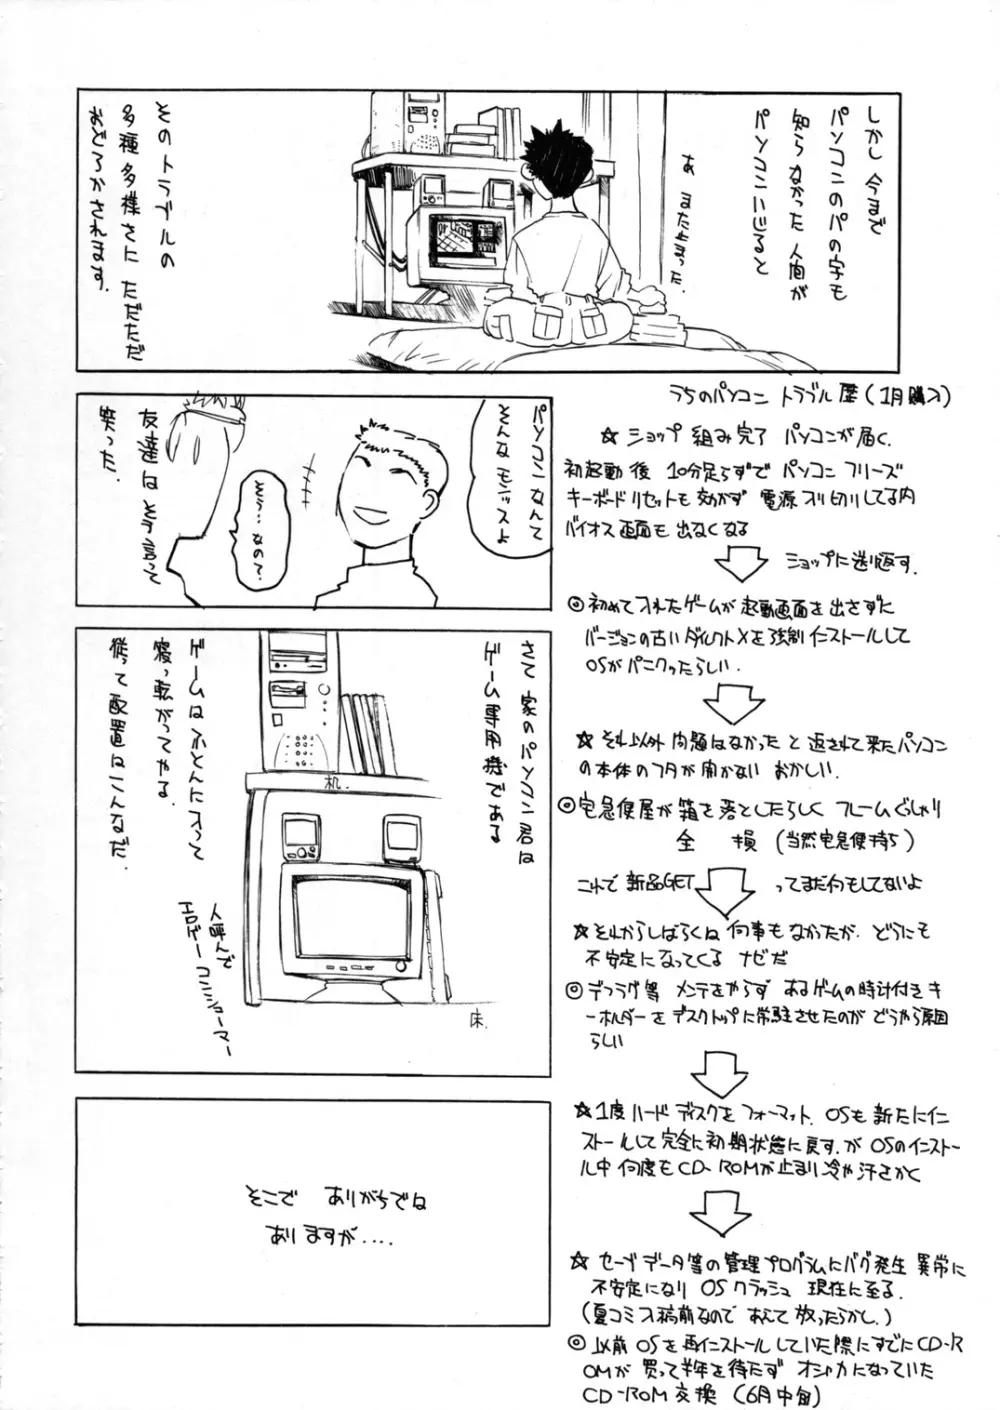 しかし今まで
パソコンのパの字も
知らなかった人間が
パソコンいじると
あ また止まった.
そのトラブルの
多種多様さに ただただ
おどろかされます.
パソコンなんて
そんなモンッスよ
そう…なの?
友達はそう言って
笑った.
さて 家のパソコン君は
ゲーム専用機である
ゲームはふとんに入って
寝っ転がってやる.
従って配置はこんなだ.
机.
床.
人呼んで
エロゲー コンショーマー
そこで ありがちでは
ありますが....
うちのパソコン トラブル歴(1月購入)
☆ショップ組み完了 パソコンが届く.
初起動後 10分足らずで パソコン フリーズ
キーボードリセットも効かず 電源入り切りしてる内
バイオス画面も出なくなる
ショップに送り返す.
◎初めて入れたゲームが起動画面を出さずに
バージョンの古いダイレクトXを強制インストールして
OSがパニクったらしい.
☆それ以外問題はなかったと返されて来たパソコン
の本体のフタが開かない おかしい.
◎宅急便屋が箱を落としたらしく フレームぐしゃり
全 損 (当然宅急便持ち)
これで新品GET
ってまだ何もしてないよ
☆それからしばらくは何事もなかったが. どうにも
不安定になってくる ナゼだ
◎デフラグ等 メンテをやらず あるゲームの時計付きキ
ーホルダーをデスクトップに常駐させたのが どうやら原因
らしい
☆1度ハードディスクをフォーマット. OSも新たにイン
ストールして完全に初期状態に戻す.が OSのインストー
ル中 何度もCD-ROMが止まり冷や汗さかく
☆セーブデータ等の管理プログラムにバグ発生 異常に
不安定になり OSクラッシュ 現在に至る.
(夏コミ入稿前なので あえて放ったらかし.)
◎以前OSを再インストールしていた際にすでにCD-R
OMが買って半年を待たず オシャカになっていた
CD-ROM交換 (6月中旬)